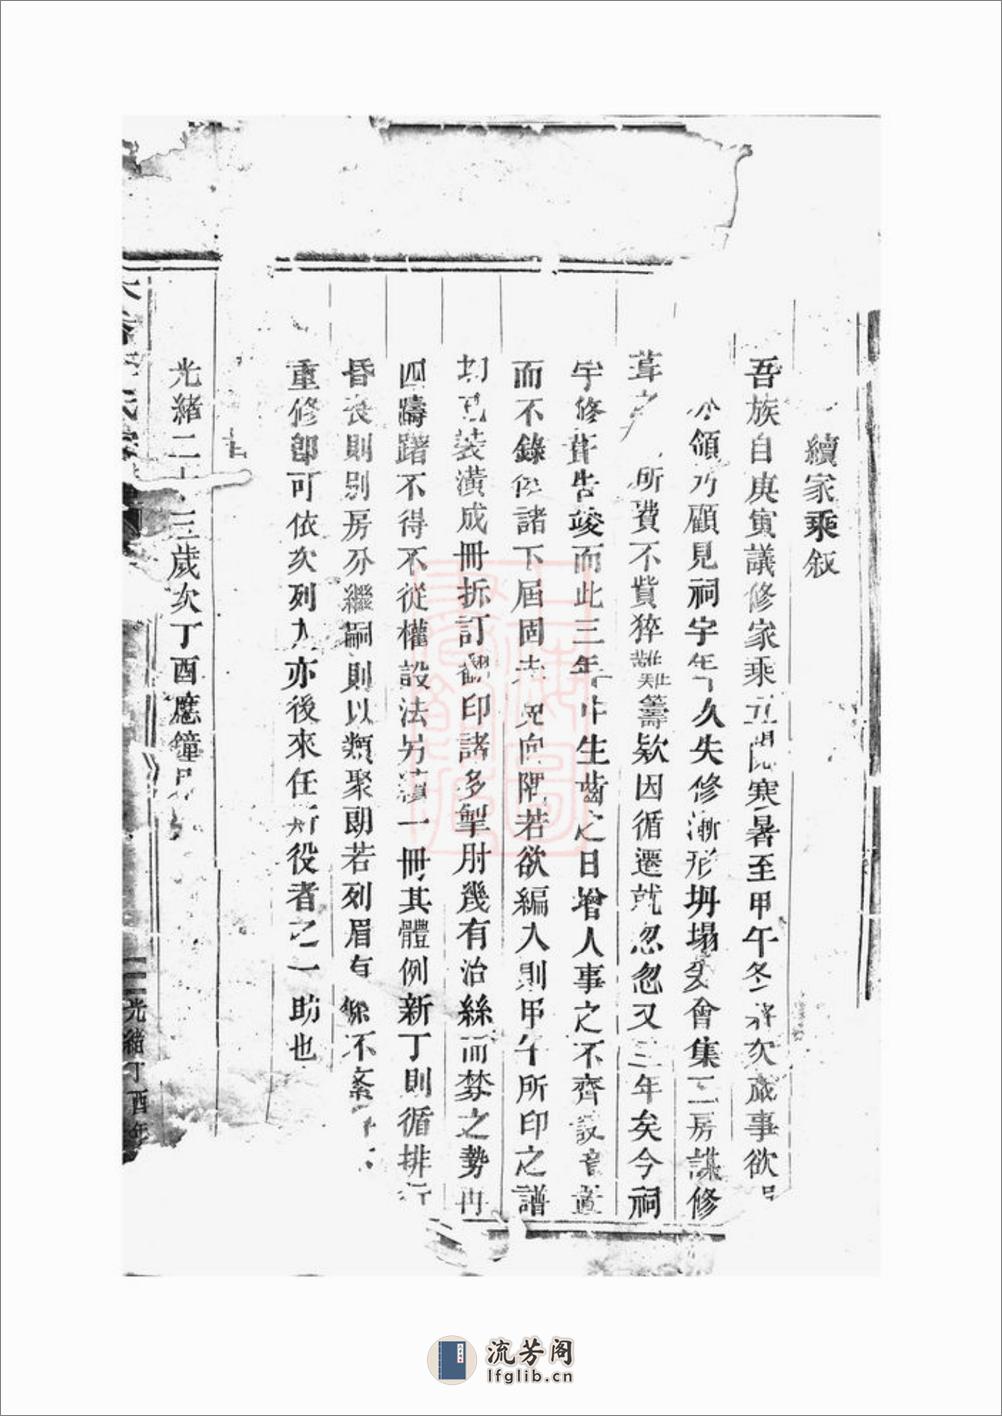 續家乘叙
吾族自庚寅議修家乘五閱寒暑至甲午冬將次蕆事欲
領乃顧見祠宇年久失修漸形坍塌爰會集三房謀修
葺之所費不貲猝難籌欵因循遷就忽忽又三年矣今祠
宇修葺告竣而此三年中生齒之日增人事之不齊設竟置
而不錄俟諸下屆固未免向隅若欲編入則甲午所印之譜
均已裝潢成冊拆訂翻印諸多掣肘幾有治絲而棼之勢再
四躊躇不得不從權設法另續一冊其體例新丁則循排行
昏喪則別房分繼嗣則以類聚朗若列眉有條不紊
重修卽可依次列入亦後來任斯役者之一助也
旹
光緒二十三歲次丁酉應鐘月
光緒丁酉年
流芳阁
lfglib.cn